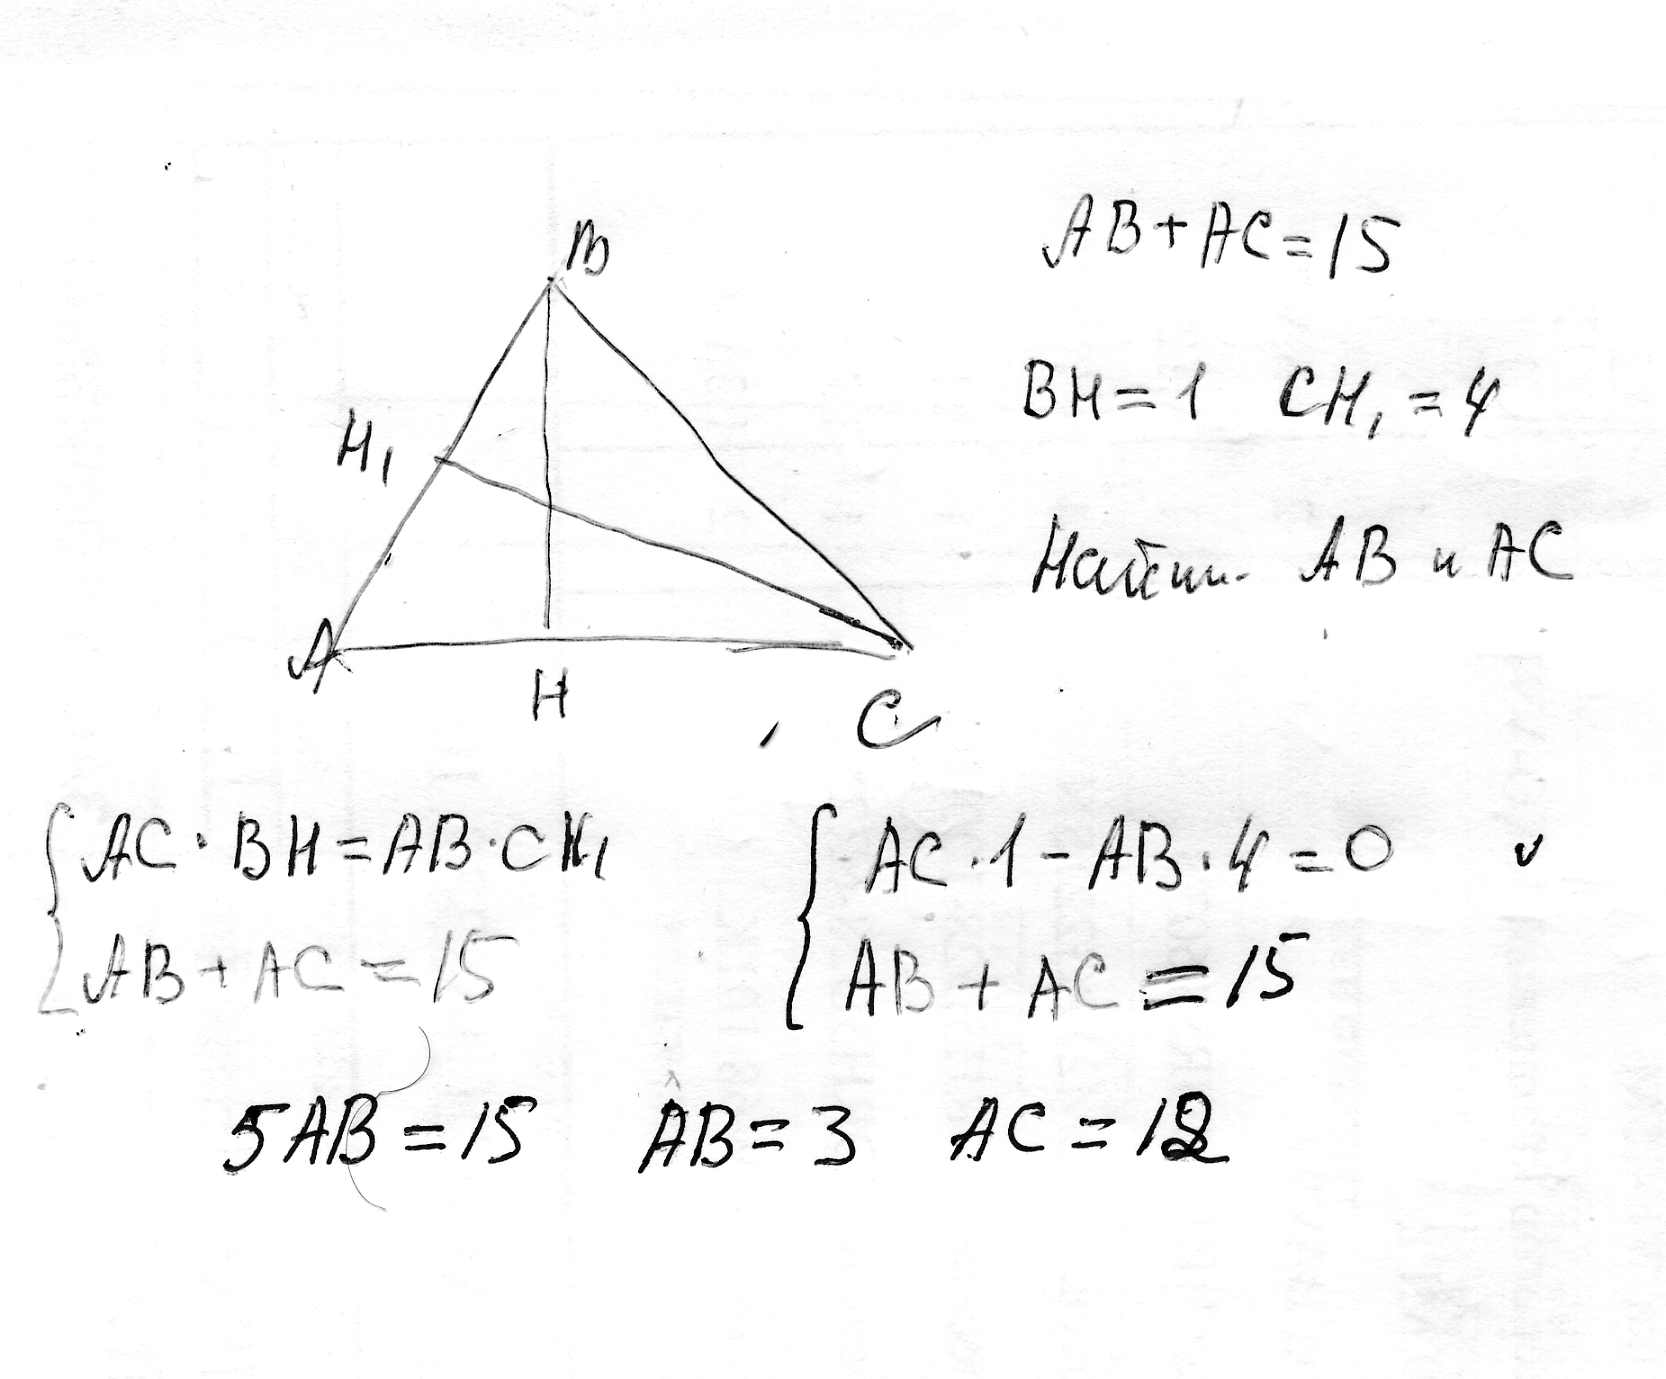 B
H₁
A
H
C
AB + AC = 15
BH = 1 CH₁ = 4
Найти AB и AC
AC · BH = AB · CH₁
AB + AC = 15
AC · 1 - AB · 4 = 0
AB + AC = 15
5AB = 15 AB = 3 AC = 12